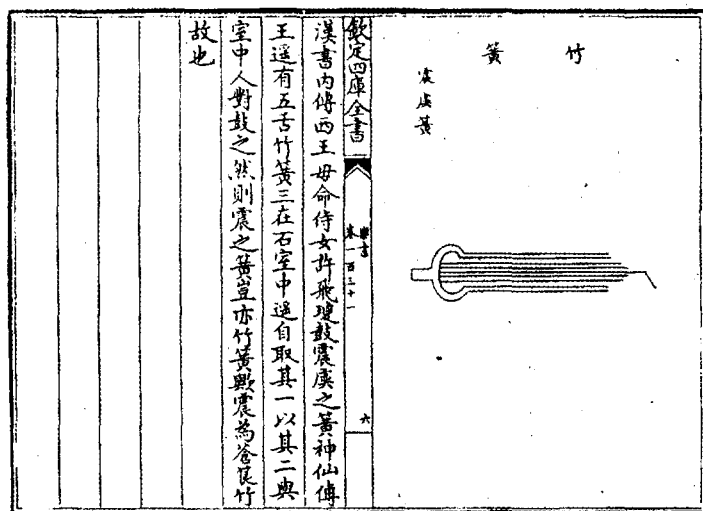 竹簧
震虡簧
欽定四庫全書
樂書
卷一百三十一
六
漢書内傳西王母命侍女許飛瓊鼓震虡之簧神仙傳
王遥有五舌竹簧三在石室中遥自取其一以其二與
室中人對鼓之然則震之簧豈亦竹簧歟震為蒼筤竹
故也